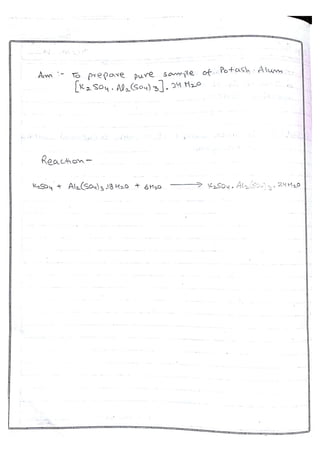 Am :- To prepare pure sample of Potash Alum
[K2SO4. Al2(SO4)3]. 24 H2O
Reaction -
K2SO4 + Al2(SO4)3 18H2O + 6H2O ⟶ K2SO4. Al2(SO4)3. 24H2O